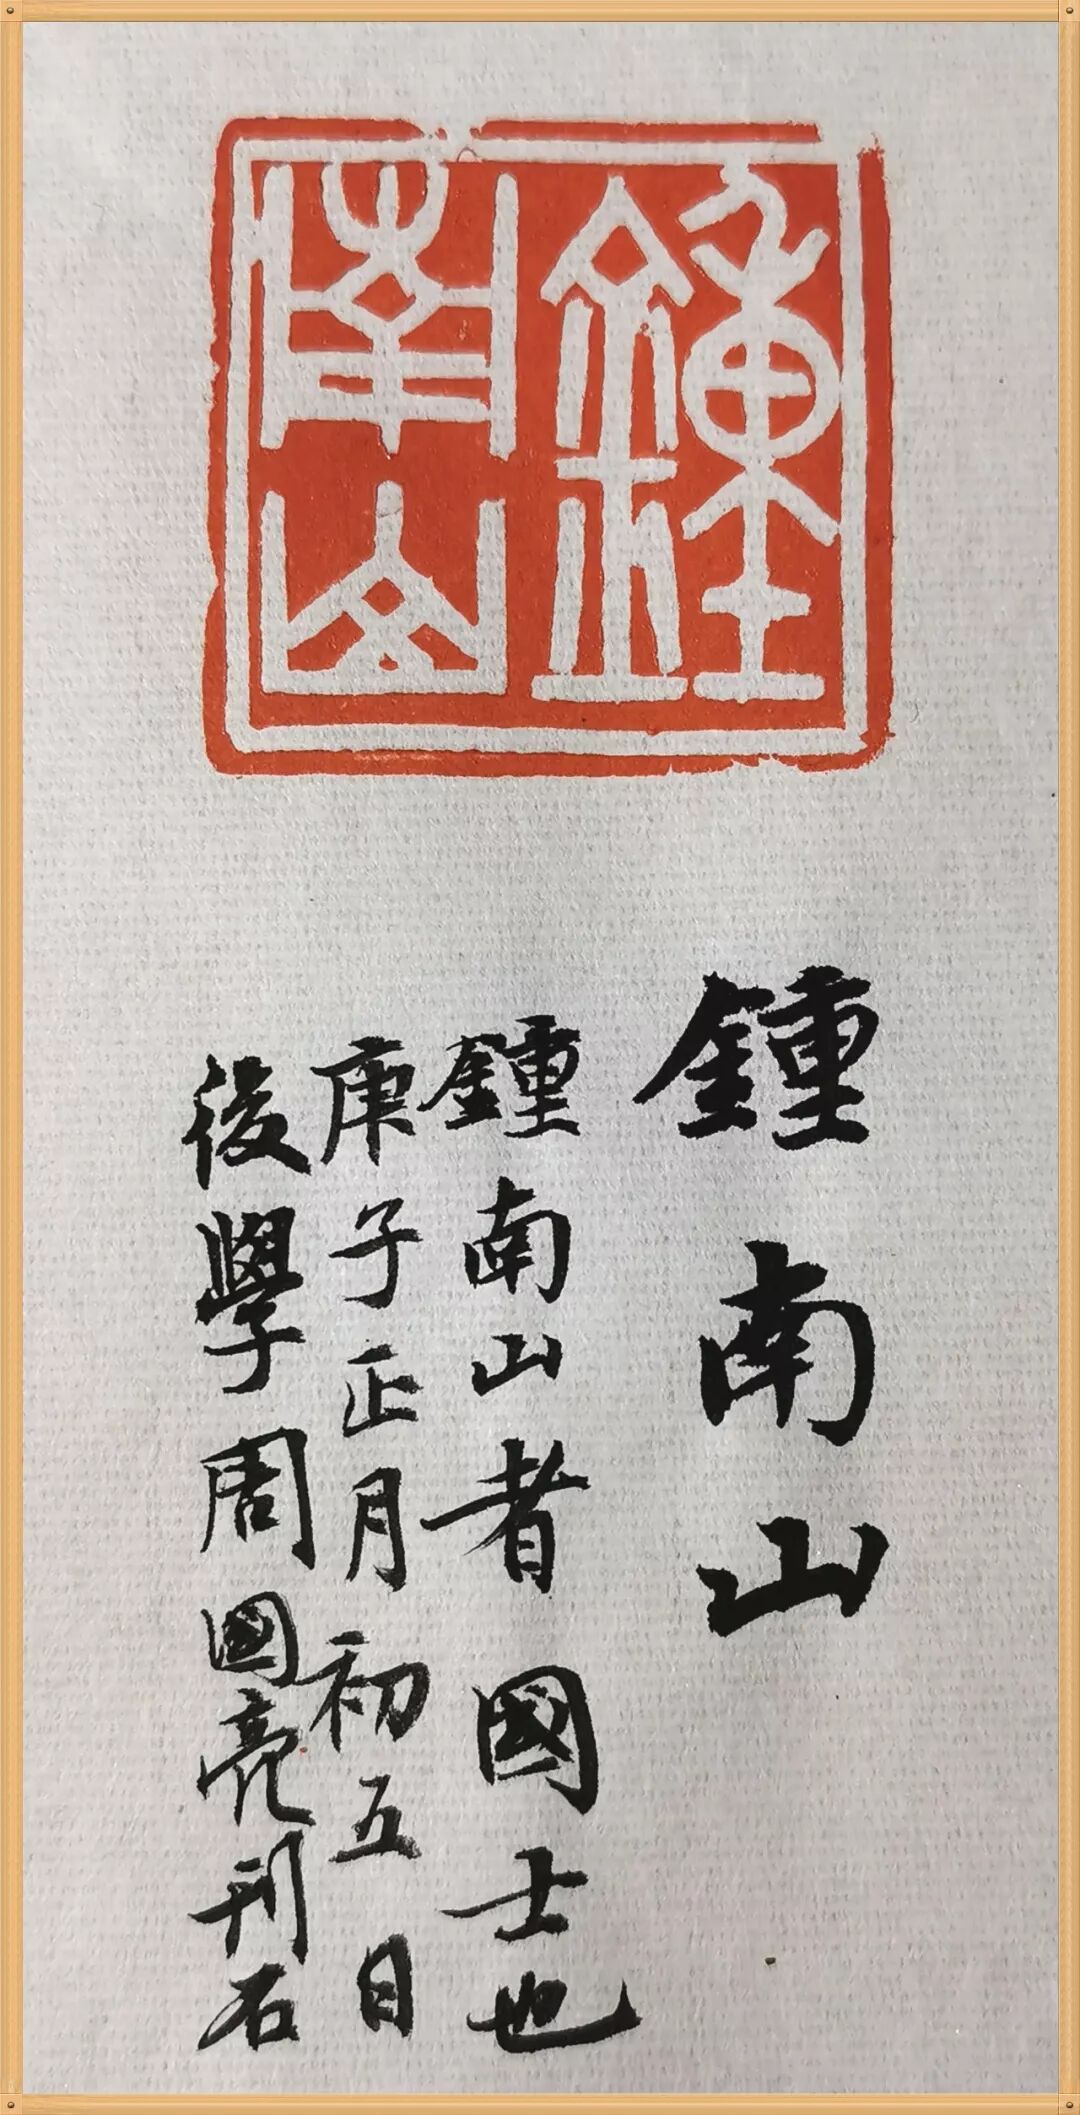 鍾南山
鍾南山
鍾南山者國士也
庚子正月初五日
後學周國亮刊石